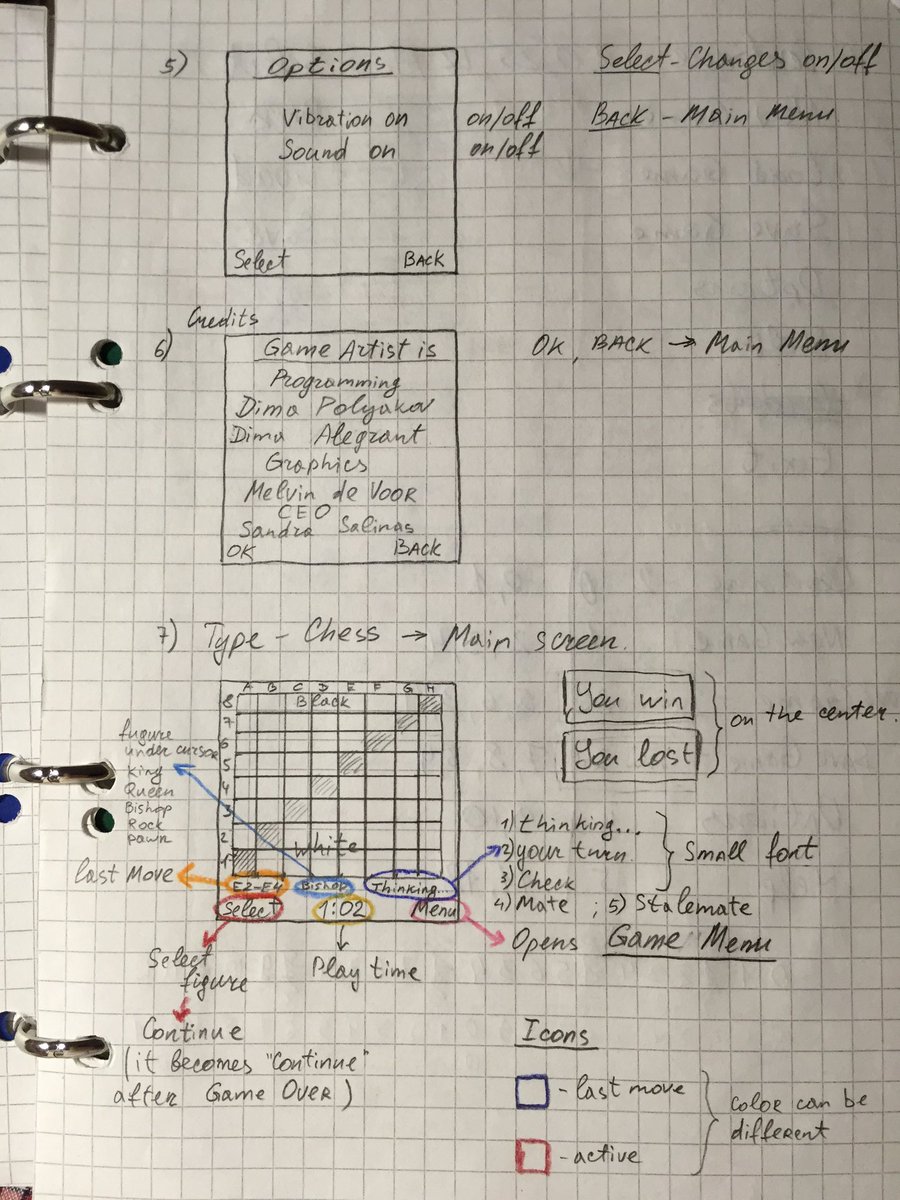 5)
Options
Select - Changes on/off
Vibration on on/off BACK - Main Menu
Sound on on/off
Select BACK
Credits
6)
Game Artist is
OK, BACK → Main Menu
Programming
Dima Polyakov
Dima Alegrant
Graphics
Melvin de Voor
CEO
Sandra Salinas
OK BACK
7) Type - Chess → Main screen.
A B C D E F G H
8 Black
7
6
5
4
3
2
1 white
fugure
under cursor
King
Queen
Bishop
Rock
pawn
You win
You lost
on the center.
1) thinking...
2) your turn.
3) Check
4) Mate ; 5) Stalemate
Small font
last Move
E2-E4 Bishop Thinking...
Select 1:02 Menu
Opens Game Menu
Select
figure
Play time
Continue
(it becomes "Continue"
after Game Over)
Icons
- last move
- active
color can be
different